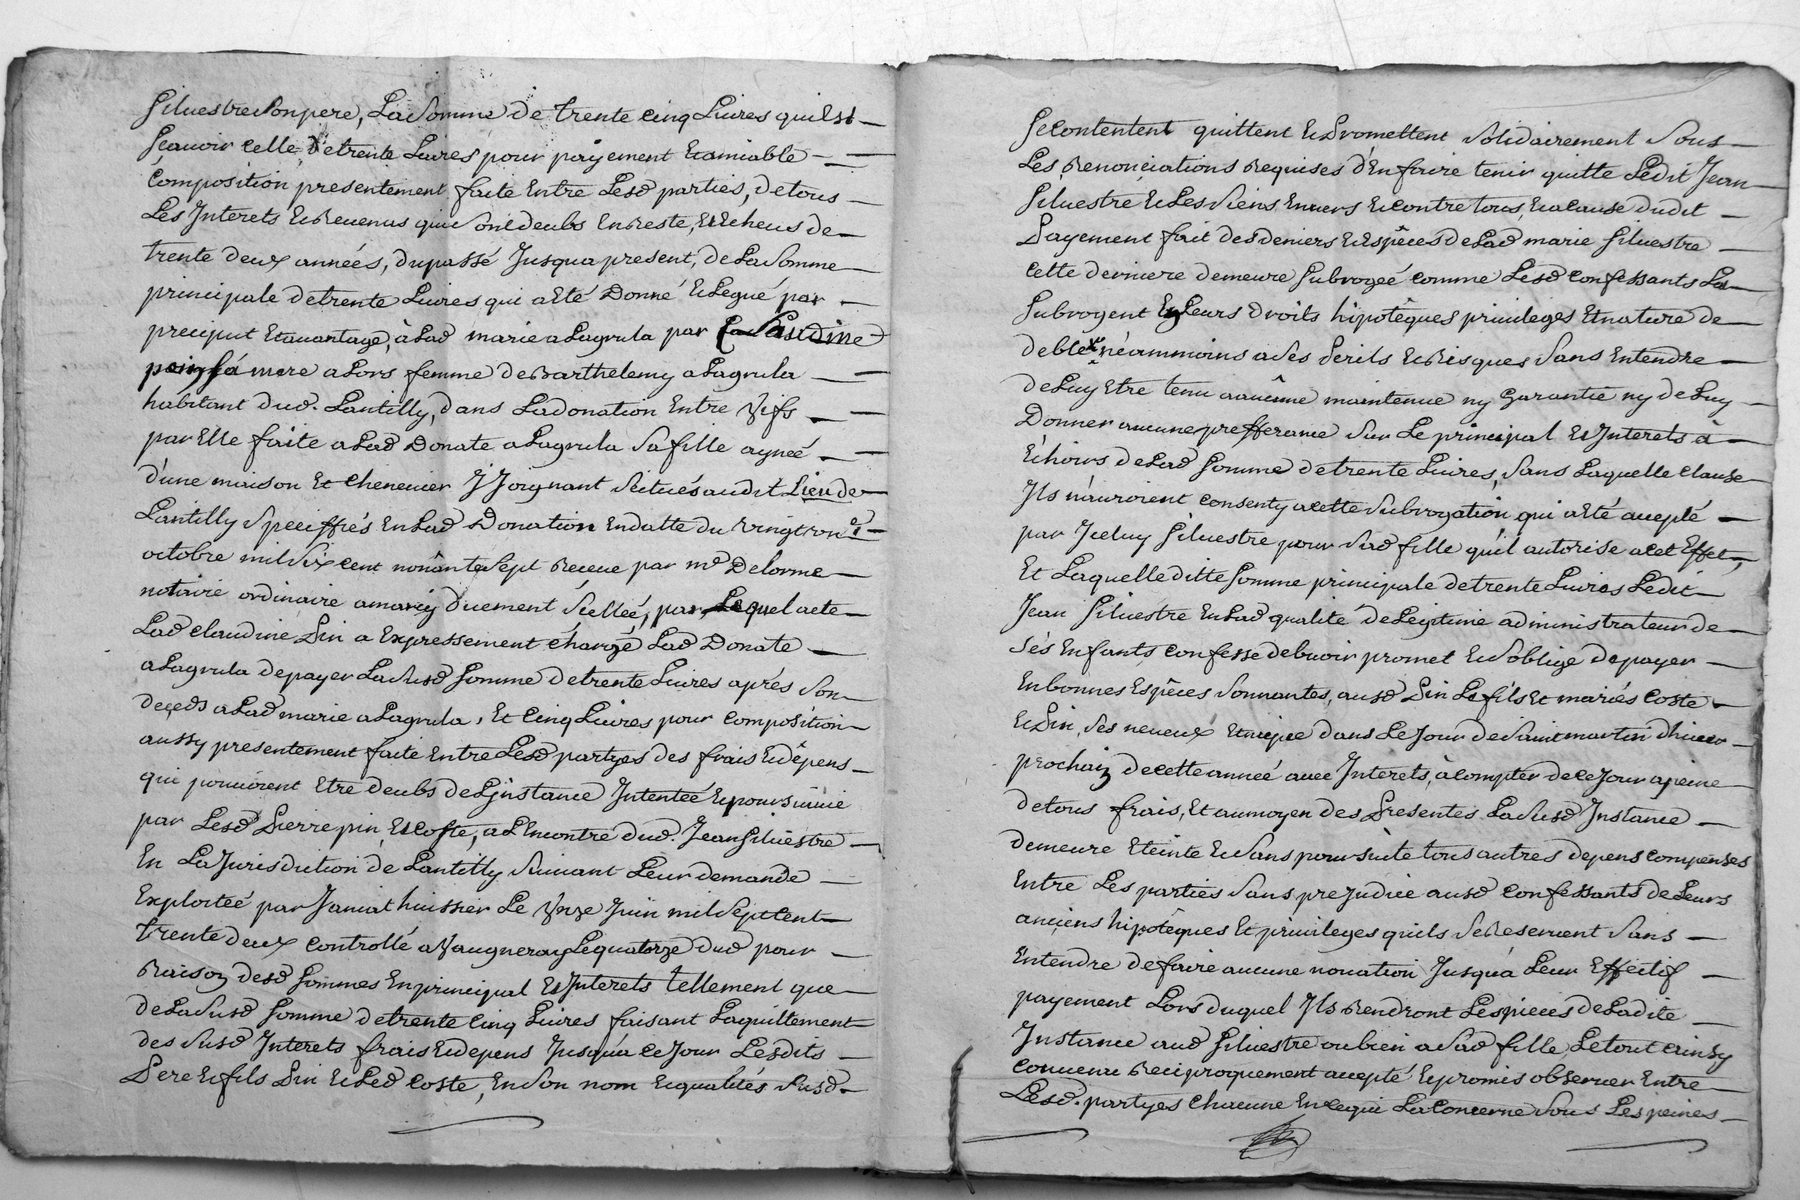 Siluestre son pere, La Somme de trente Cinq Liures quil st
Scauoir celle de trente Liures pour payement Et amiable
Composition presentement faite Entre Lesd parties, de tous
Les Interets Et Reuenus qui sont deubs En Reste, Et Echeus de
trente deux années, du passé Jusqua present, de La Somme
principale de trente Liures qui a Eté Donné Et Legué par
preciput Et auantage, à Lad marie a Lagrula par Claudine
pin sa mere a Lors femme de Barthelemy a Lagrula
habitant dud. Lantilly, dans La donation Entre Vifs
par Elle faite a Lad Donate a Lagrula sa fille aynée
d'une maison Et Cheneuier Y Joignant Scitués audit Lieu de
Lantilly Speciffiés En Lad Donation En datte du vingt
octobre mil Six cent nonante Sept Receue par me Delorme
notaire ordinaire duement Scellée, par Lequel acte
Lad Claudine Pin a Expressement chargé Lad Donate
a Lagrula de payer La Susd Somme de trente Liures aprés Son
deceds a Lad marie a Lagrula, Et Cinq Liures pour Composition
aussy presentement faite Entre Lesd partyes des frais Et dépens
qui pouuoient Etre deubs de L'jnstance Intentée Et poursuiuie
par Lesd Pierre pin, Et Coste, a L'Encontre dud. Jean Siluestre
En La Jurisdiction de Lantilly Suiuant Leur demande
Exploitée par Janiat huissier Le Unze Juin mil Sept Cent
trente deux Controllé a Vaugneray Le quatorze dud pour
Raison desd Sommes En principal Et Interets tellement que
de La Susd Somme de trente Cinq Liures faisant L'aquittement
des Susd Interets frais Et depens Jusqu'a ce Jour Lesdits
Pere Et fils Pin Et Led Coste, En Son nom Et qualités Susd
Se Contentent quittent Et Promettent Solidairement Sous
Les Renonciations Requises d'En faire tenir quitte Ledit Jean
Siluestre Et Les Siens Enuers Et Contre tous, Et a Cause dudit
Payement fait des deniers Et Espéces de Lad marie Siluestre
Cette derniere demeure Subrogeé comme Lesd Confessants La
Subrogent En Leurs droits hipotêques priuileges Et nature de
deble néammoins a Ses Perils Et Risques Sans Entendre
de Luy Etre tenu a aucune maintenue ny Garantie ny de Luy
Donner aucune preferance Sur Le principal Et Interets à
Echoirs de Lad Somme de trente Liures, Sans Laquelle Clause
Ils n'auroient Consenty a Cette Subrogation qui a Eté accepté
par Jceluy Siluestre pour Sad fille qu'il autorise a cet Effet,
Et Laquelle ditte Somme principale de trente Liures Ledit
Jean Siluestre En Lad qualité de Legitime administrateur de
Sés Enfants Confesse debuoir promet Et S'oblige de payer
En bonnes Espéces Sonnantes, ausd Pin Le fils Et mariés Coste
Et Pin, Ses neueux Et niepce dans Le Jour de Saint martin d'hiuer
prochain de cette année auec Interets, à Compter de ce Jour a peine
de tous frais, Et au moyen des Presentes La Susd Instance
demeure Eteinte Et Sans poursuite tous autres depens Compensés
Entre Les parties Sans prejudice ausd Confessants de Leurs
anciens hipotêques Et priuileges quils Se Reseruent Sans
Entendre de faire aucune nouation Jusqu'a Leur Effectif
payement Lors duquel Ils Rendront Les pieces de Ladite
Instance aud Siluestre ou bien a Sad fille, Le tout ainsy
Conuenu Reciproquement accepté Et promis obseruer Entre
Lesd. partyes Chacune En ce qui La Concerne Sous Les peines